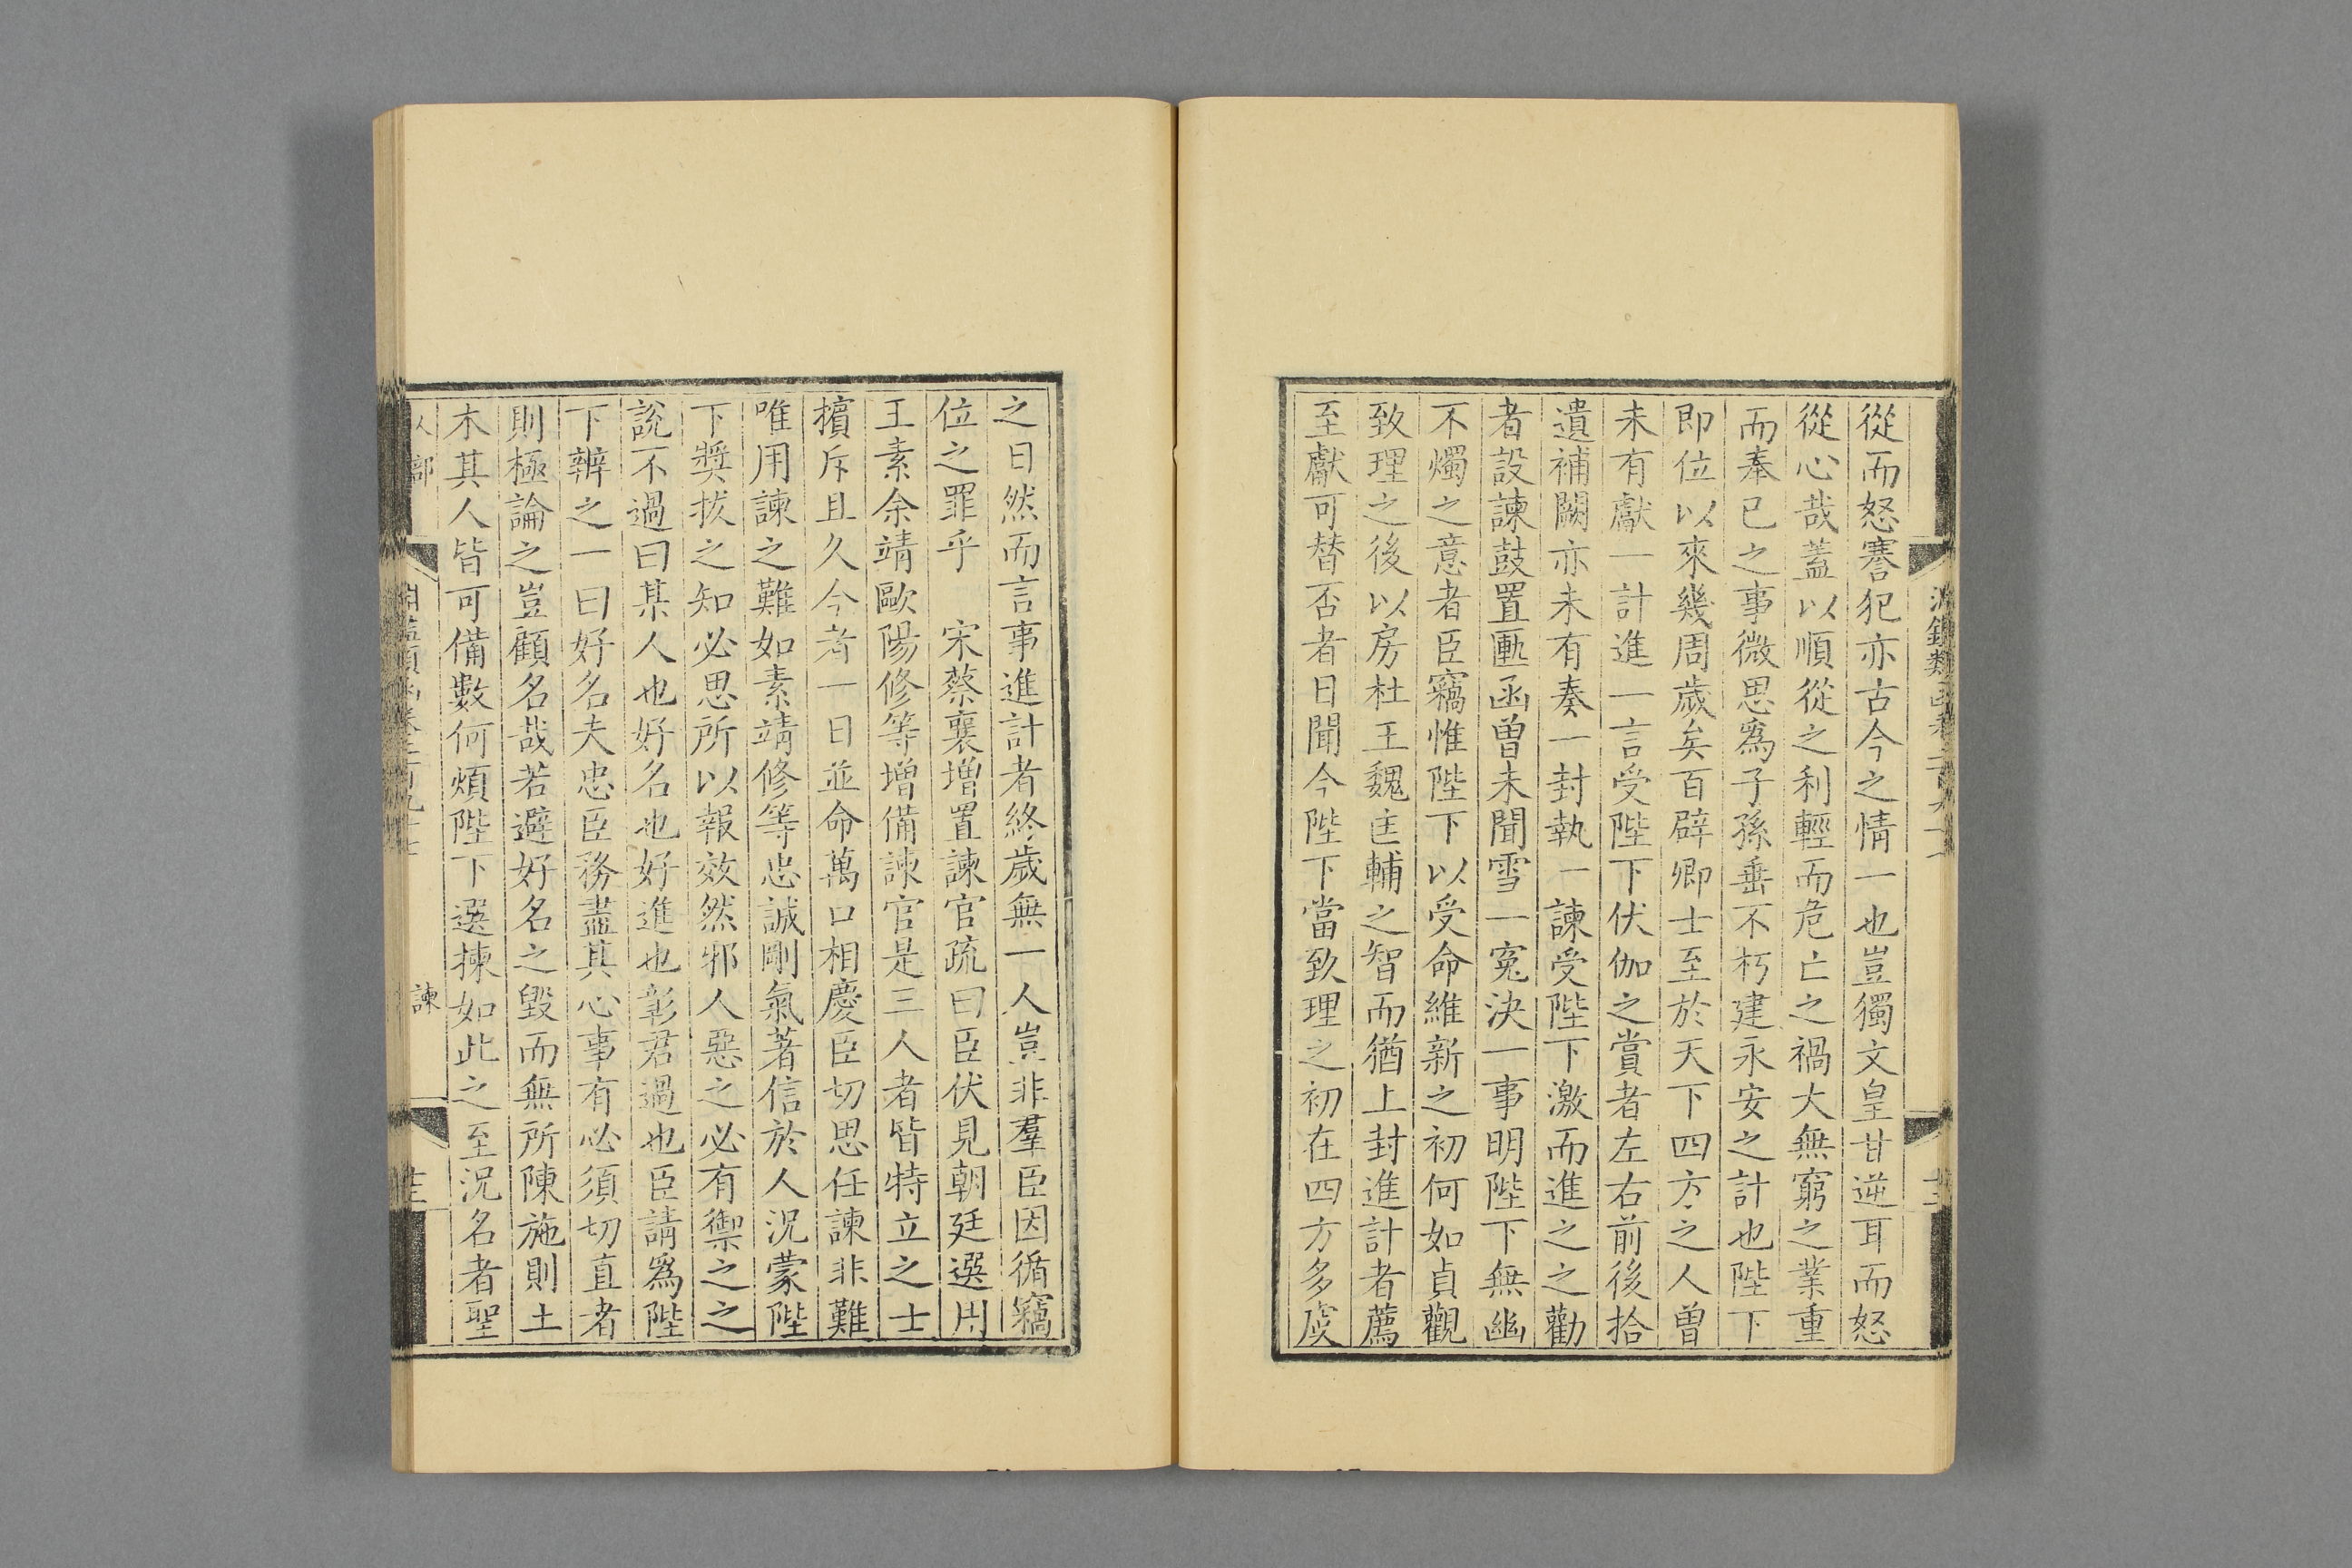 從而怒謇犯亦古今之情一也豈獨文皇甘逆耳而怒
從心哉蓋以順從之利輕而危亡之禍大無窮之業重
而奉己之事微思爲子孫垂不朽建永安之計也陛下
即位以來幾周歲矣百辟卿士至於天下四方之人曾
未有獻一計進一言受陛下伏伽之賞者左右前後拾
遺補闕亦未有奏一封執一諫受陛下激而進之之勸
者設諫鼓置匭函曾未聞雪一冤決一事明陛下無幽
不燭之意者臣竊惟陛下以受命維新之初何如貞觀
致理之後以房杜王魏匡輔之智而猶上封進計者薦
至獻可替否者日聞今陛下當致理之初在四方多虞
之日然而言事進計者終歲無一人豈非羣臣因循竊
位之罪乎　宋蔡襄增置諫官疏曰臣伏見朝廷選用
王素余靖歐陽修等增備諫官是三人者皆特立之士
擯斥且久今者一日並命萬口相慶臣切思任諫非難
唯用諫之難如素靖修等忠誠剛氣著信於人況蒙陛
下獎拔之知必思所以報效然邪人惡之必有禦之之
說不過曰某人也好名也好進也彰君過也臣請爲陛
下辨之一曰好名夫忠臣務盡其心事有必須切直者
則極論之豈顧名哉若避好名之毀而無所陳施則土
木其人皆可備數何煩陛下選揀如此之至況名者聖
諫